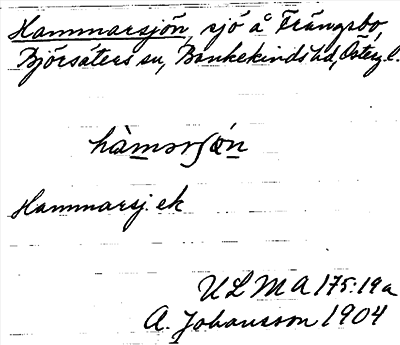 Hammarsjön, sjö å Frängsbo,
Björsäters sn, Bankekinds hd, Österg. l.
hàmərſön
Hammarsj. ek
ULMA 175:19a
A. Johansson 1904